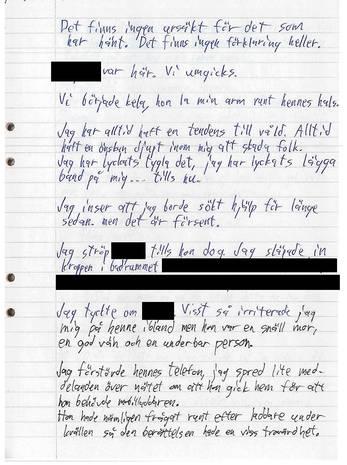 Det finns ingen ursäkt för det som
har hänt. Det finns ingen förklaring heller.
var här. Vi umgicks.
Vi började kela, hon la min arm runt hennes hals.
Jag har alltid haft en tendens till våld. Alltid
haft en önskan djupt inom mig att skada folk.
Jag har lyckats tygla det, jag har lyckats lägga
band på mig... tills nu.
Jag inser att jag borde sökt hjälp för länge
sedan. men det är försent.
Jag ströp tills hon dog. Jag släpade in
kroppen i badrummet
Jag tyckte om . Visst så irriterade jag
mig på henne ibland men hon var en snäll mor,
en god vän och en underbar person.
Jag förstörde hennes telefon, jag spred lite med-
delanden över nätet om att hon gick hem för att
hon behövde
Hon hade nämligen frågat runt efter laddare under
kvällen så den berättelsen hade en viss trovärdhet.